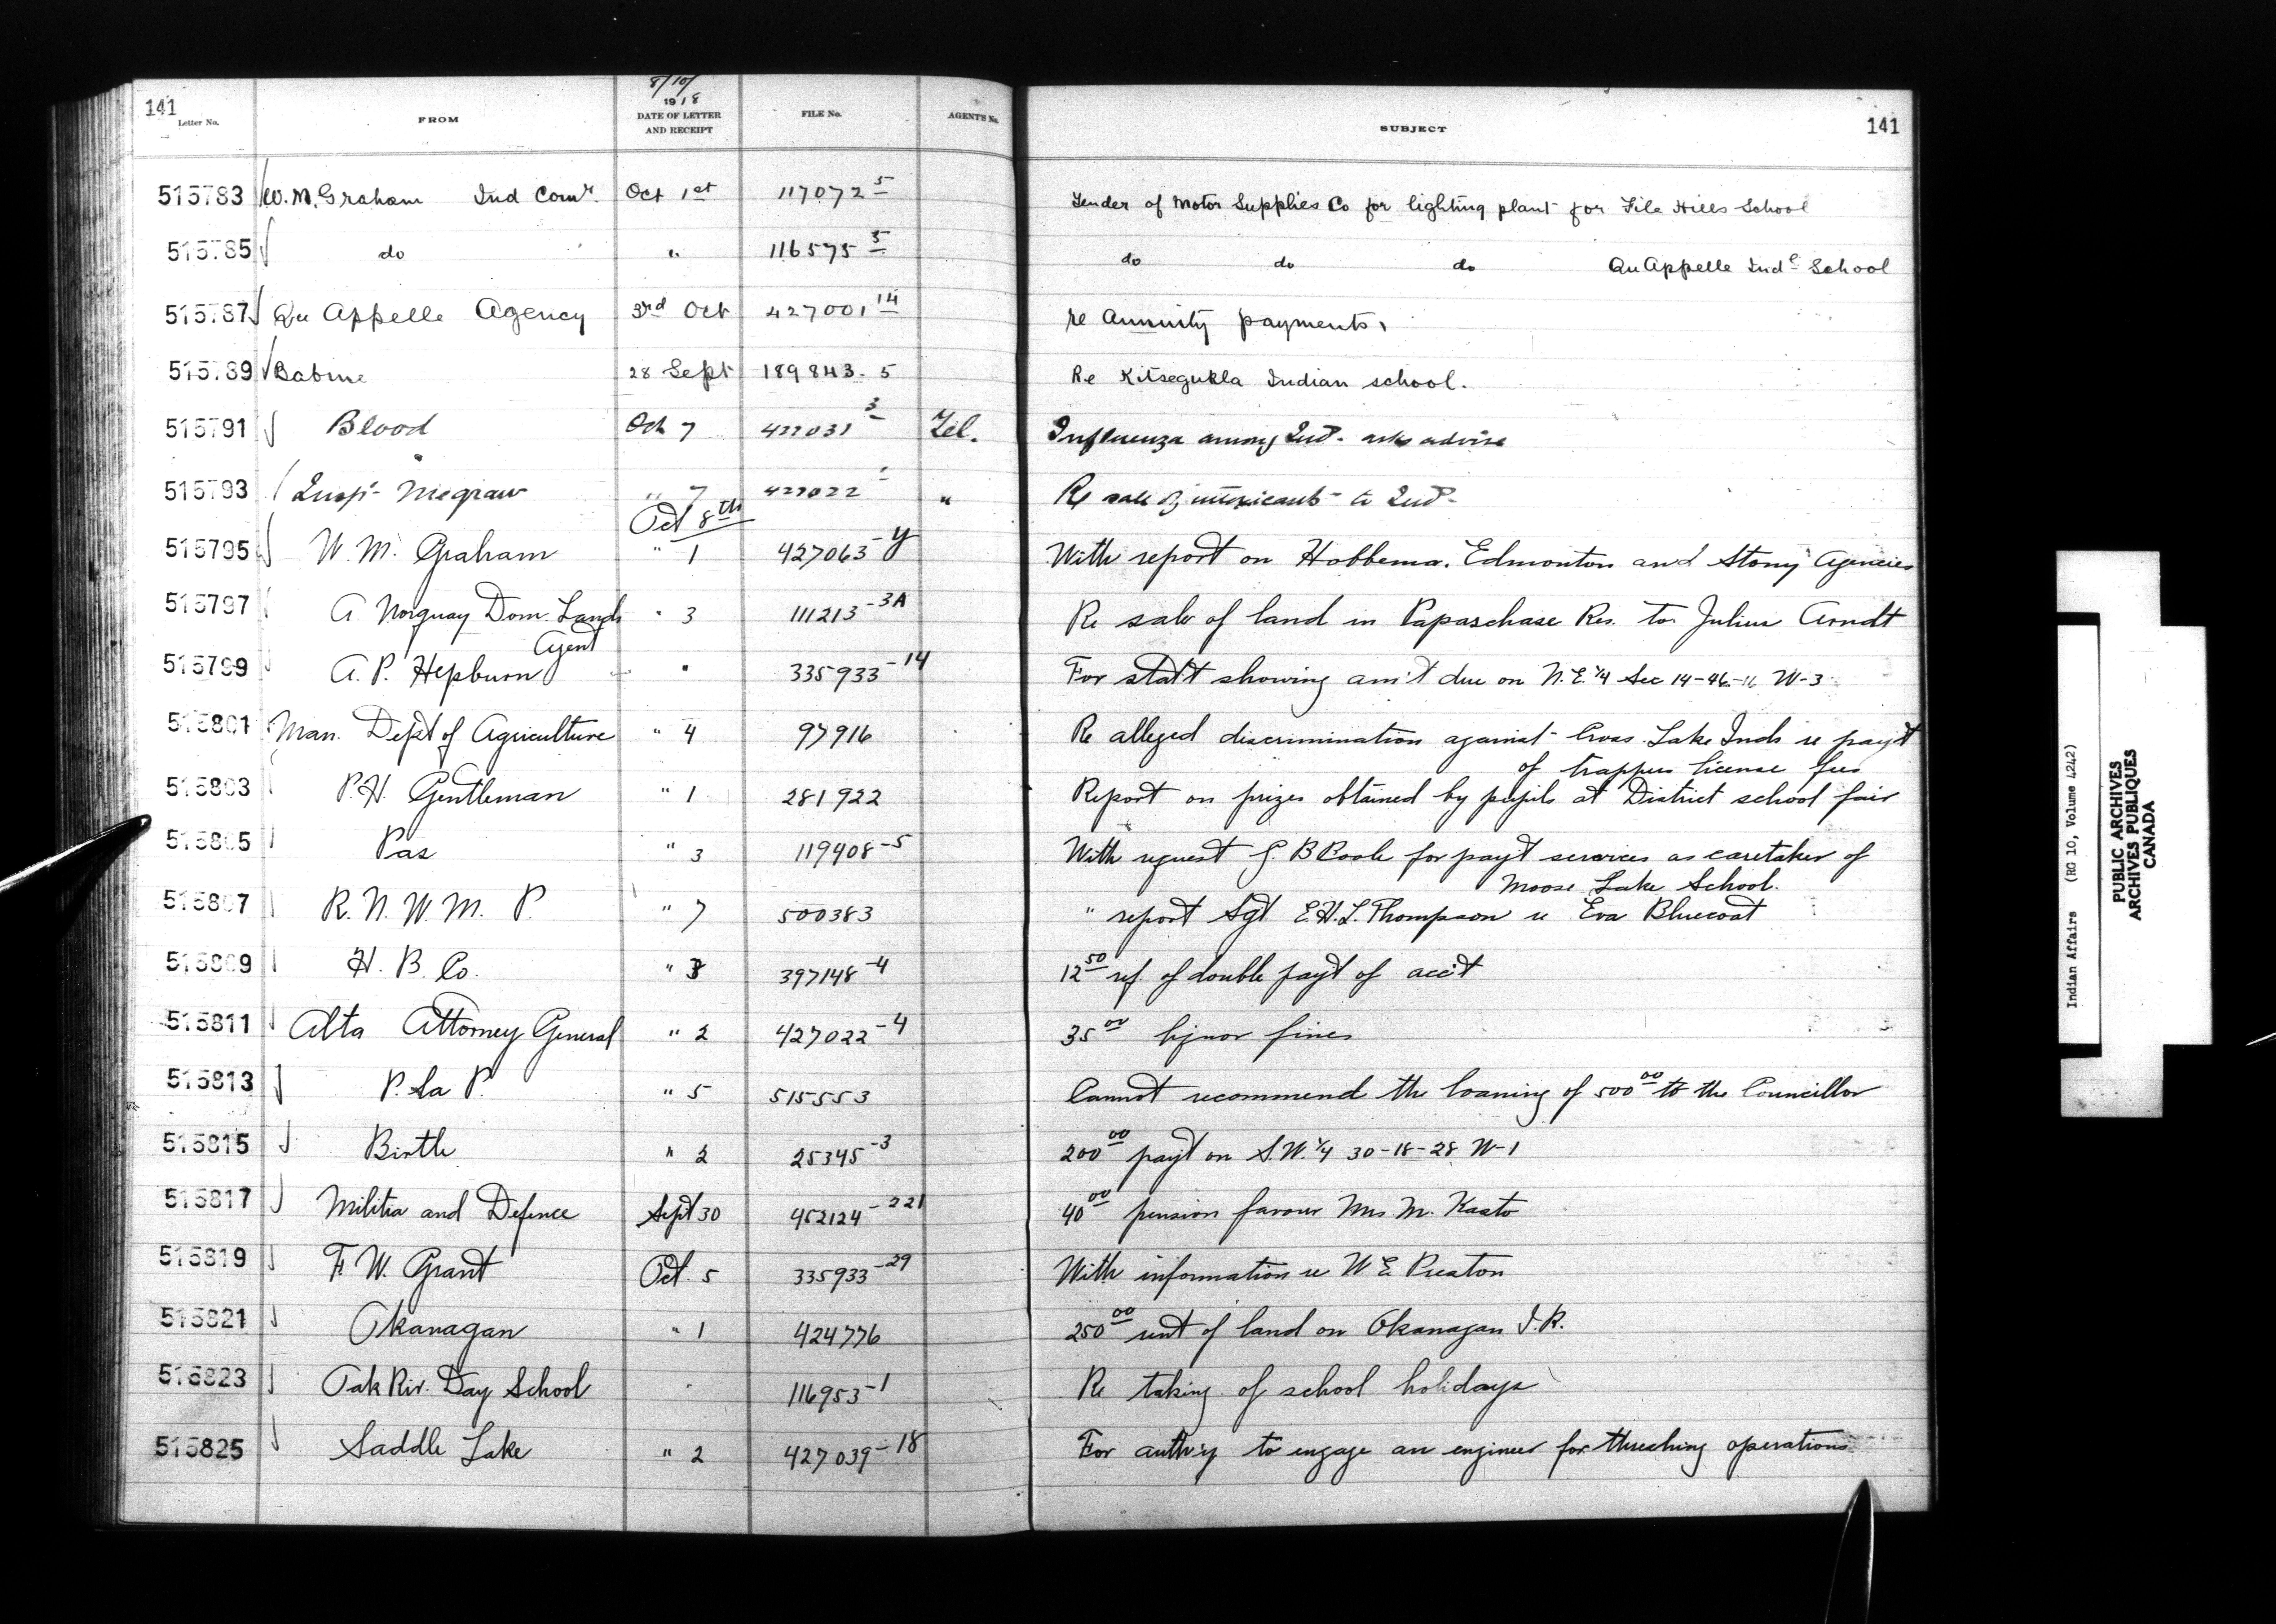 8/10/
141 Letter No. FROM 1918 DATE OF LETTER AND RECEIPT FILE No. AGENTS No. SUBJECT 141
515783 W. M. Graham Ind Comr. Oct 1st 117072 5 Tender of Motor Supplies Co for lighting plant for File Hills School
515785 do " 116575 5 do do do Qu Appelle Indl School
515787 Qu Appelle Agency 3rd Oct 427001 14 re Annuity payments.
515789 Babine 28 Sept 189843. 5 Re Kitsegukla Indian school.
515791 Blood Oct 7 427031 3 Tel. Influenza among Inds. asks advise
515793 Insp. Megraw " 7 427022 " Re sale of intoxicants to Inds.
Oct 8th
515795 W. M. Graham " 1 427063-Y With report on Hobbema. Edmonton and Stony Agencies
515797 A Norquay Dom. Lands " 3 111213-3A Re sale of land in Papaschase Res. to Julius Arndt
Agent
515799 A. P. Hepburn " 335933-14 For stat't showing am't due on N.E. 1/4 Sec 14-46-11 W-3
515801 Man. Dept of Agriculture " 4 97916 Re alleged discrimination against Cross Lake Inds re pay't
of trappers license fees
515803 P. H. Gentleman " 1 281922 Report on prizes obtained by pupils at District school fair
515805 Pas " 3 119408-5 With request G. B Poole for pay't services as caretaker of
Moose Lake School.
515807 R. N. W. M. P. " 7 500383 " report Sgt E. H. L. Thompson re Eva Bluecoat
515809 H. B. Co. " 3 397148-4 12 50 ref. of double pay't of acc't
515811 Alta Attorney General " 2 427022-4 35 00 liquor fines
515813 P. La P. " 5 515553 Cannot recommend the loaning of 500 00 to the Councillor
515815 Birtle " 2 25345-3 200 00 pay't on S.W. 1/4 30-18-28 W-1
515817 Militia and Defence Sept 30 452124-221 40 00 pension favour Mrs M. Kasto
515819 F. W. Grant Oct. 5 335933-29 With information re W E Preston
515821 Okanagan " 1 424776 250 00 rent of land on Okanagan I. R.
515823 Oak Riv. Day School " 116953-1 Re taking of school holidays
515825 Saddle Lake " 2 427039-18 For auth'y to engage an engineer for threshing operations
Indian Affairs (RG 10, Volume 4242)
PUBLIC ARCHIVES
ARCHIVES PUBLIQUES
CANADA